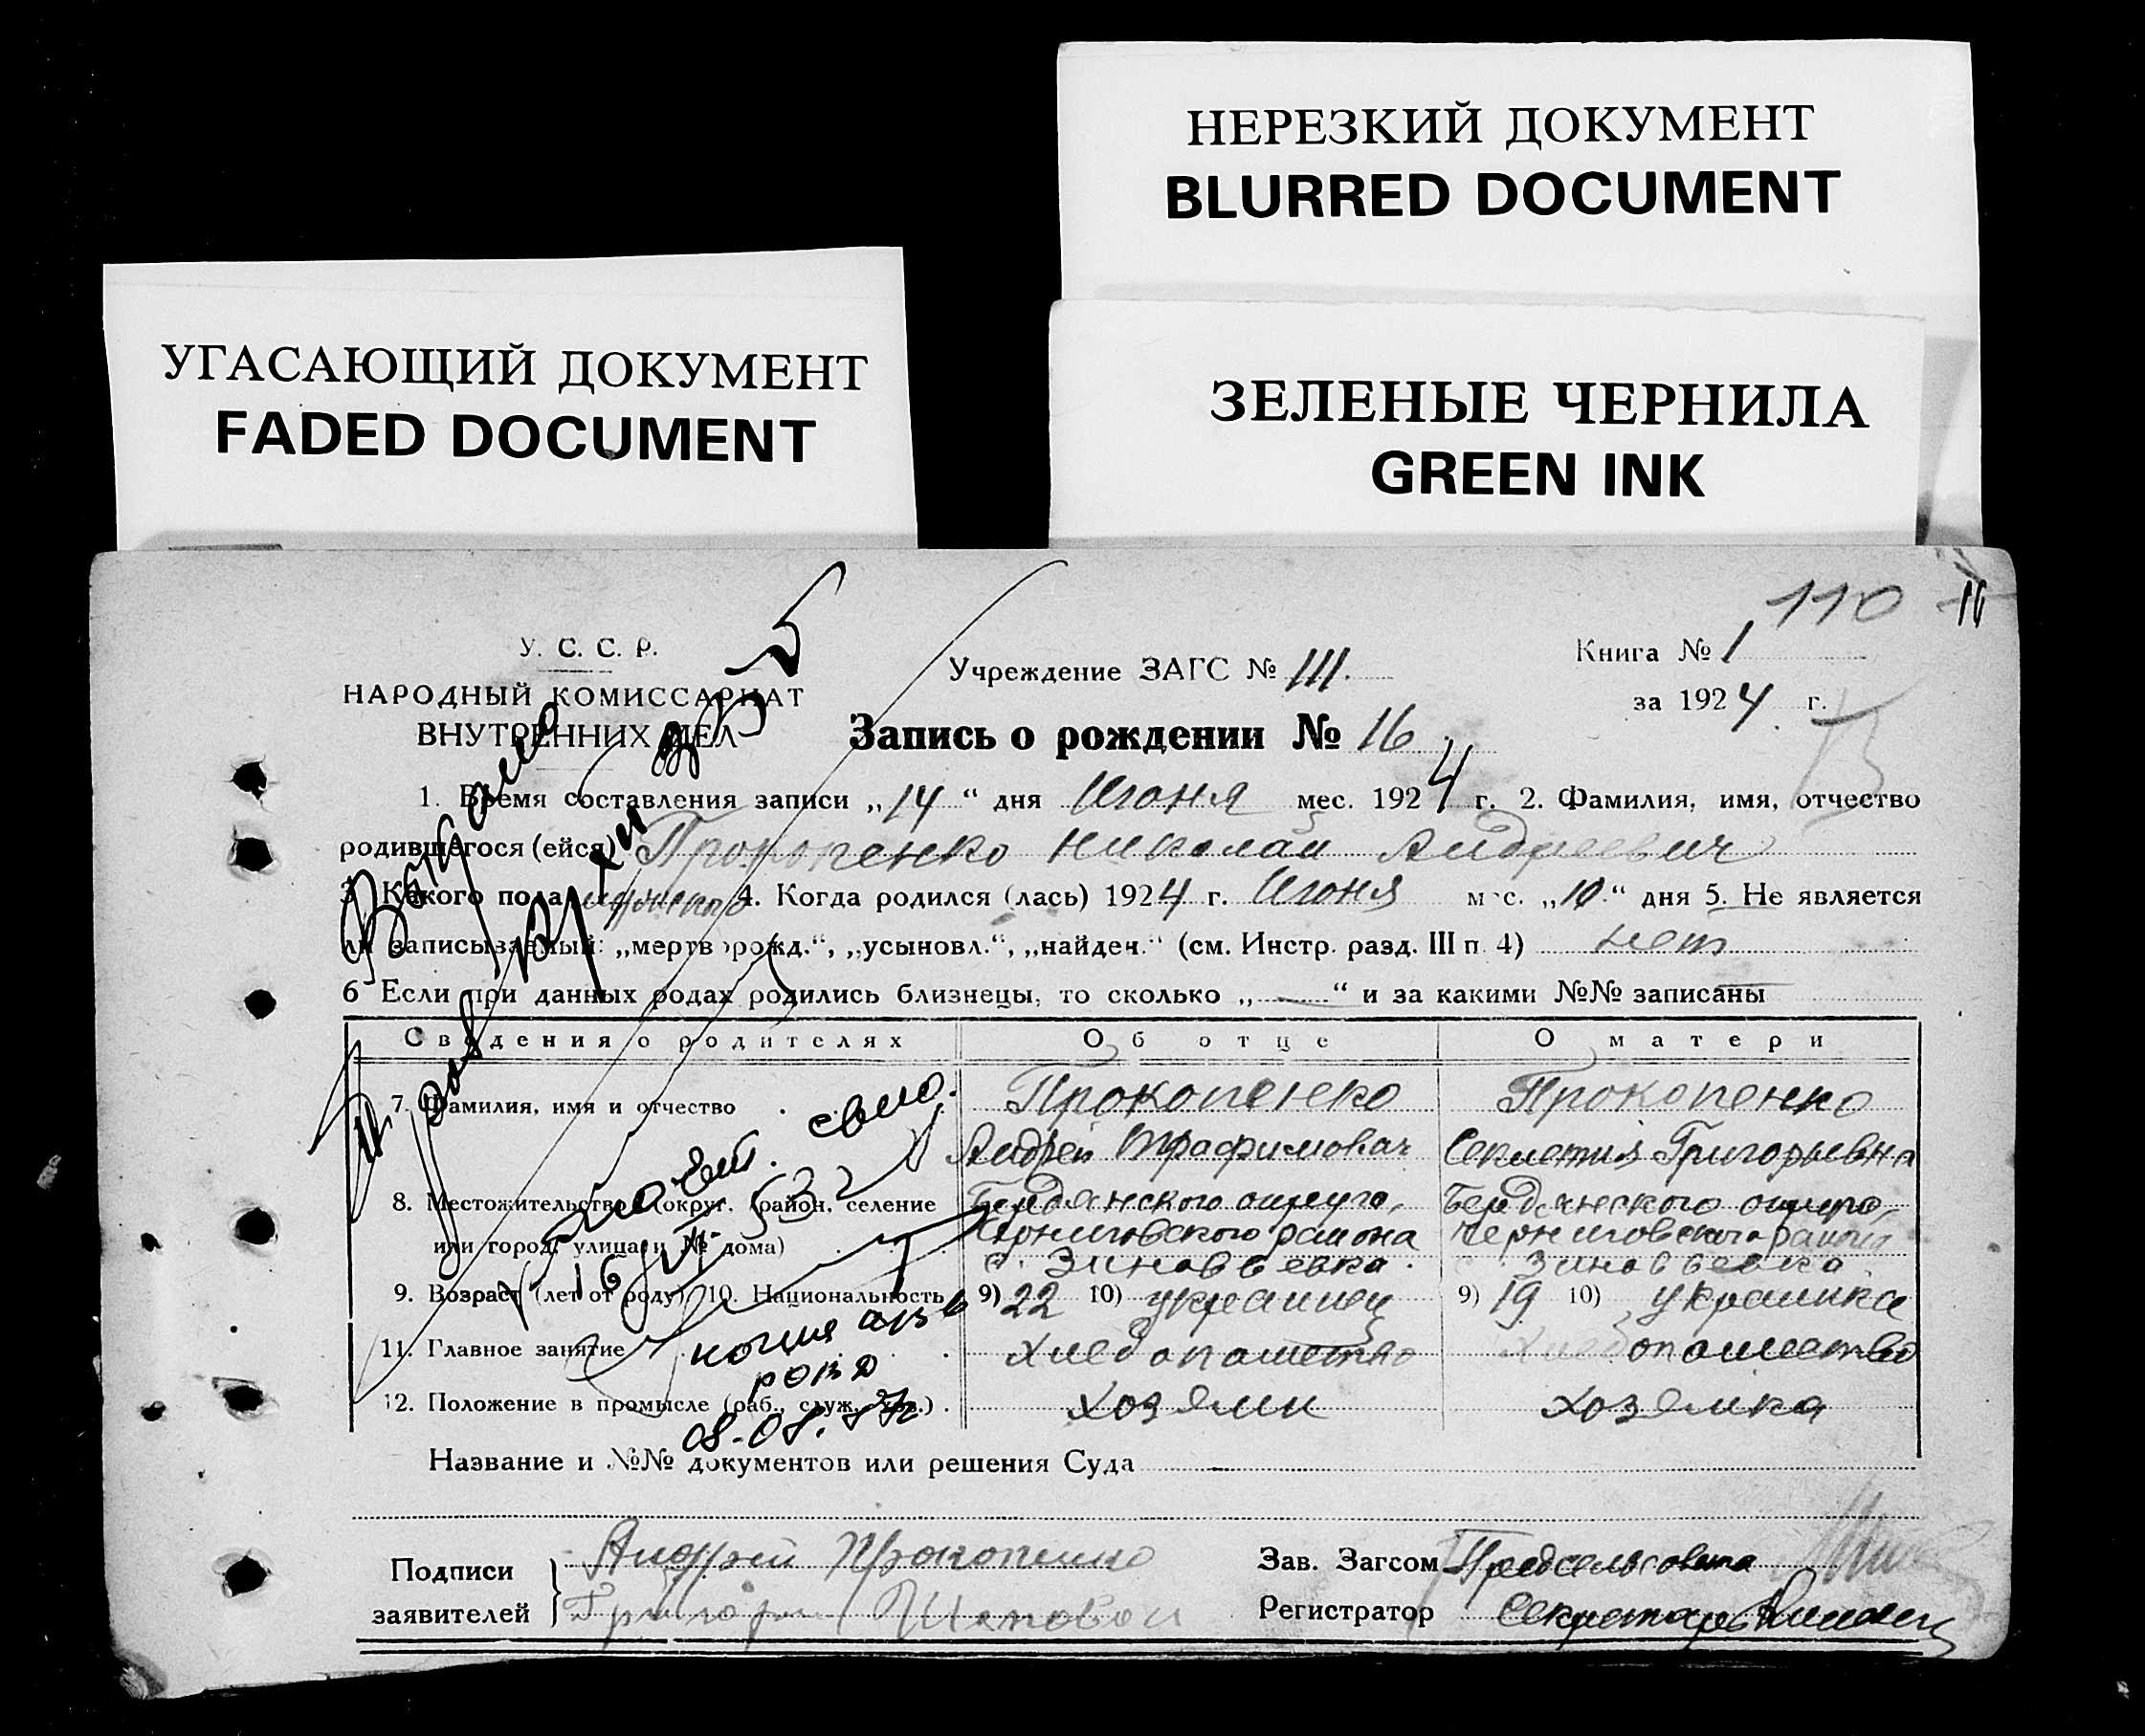 НЕРЕЗКИЙ ДОКУМЕНТ
BLURRED DOCUMENT
УГАСАЮЩИЙ ДОКУМЕНТ
FADED DOCUMENT
ЗЕЛЕНЫЕ ЧЕРНИЛА
GREEN INK
110
У. С. С. Р.
НАРОДНЫЙ КОМИССАРИАТ
ВНУТРЕННИХ ДЕЛ
Учреждение ЗАГС № 111.
Книга № 1
за 1924 г.
Запись о рождении № 16
1. Время составления записи „14“ дня Июня мес. 1924 г. 2. Фамилия, имя, отчество
родившегося (ейся) Прокопенко Николай Андреевич
3. Какого пола 4. Когда родился (лась) 1924 г. Июня мес. „10“ дня 5. Не является
ли записываемый: „мертворожд.“, „усыновл.“, „найден.“ (см. Инстр. разд. III п. 4) нет
6 Если при данных родах родились близнецы, то сколько „—“ и за какими №№ записаны
Сведения о родителях Об отце О матери
7. Фамилия, имя и отчество Прокопенко Прокопенко
Андрей Трафимович Григорьевна
8. Местожительство (округ, район, селение Бердянского округа, Бердянского округа,
или город, улица и № дома) Черниговского района Черниговского района
с. Зиновьевка. с. Зиновьевка
9. Возраст (лет от роду) 10. Национальность 9) 22 10) украинец 9) 19 10) украинка
11. Главное занятие хлебопашество хлебопашество
12. Положение в промысле (раб., служ., хоз.) хозяин хозяйка
копия
08.08.
Название и №№ документов или решения Суда
Подписи заявителей
Андрей Прокопенко
Григорий
Зав. Загсом Предсельсовета
Регистратор Секретарь